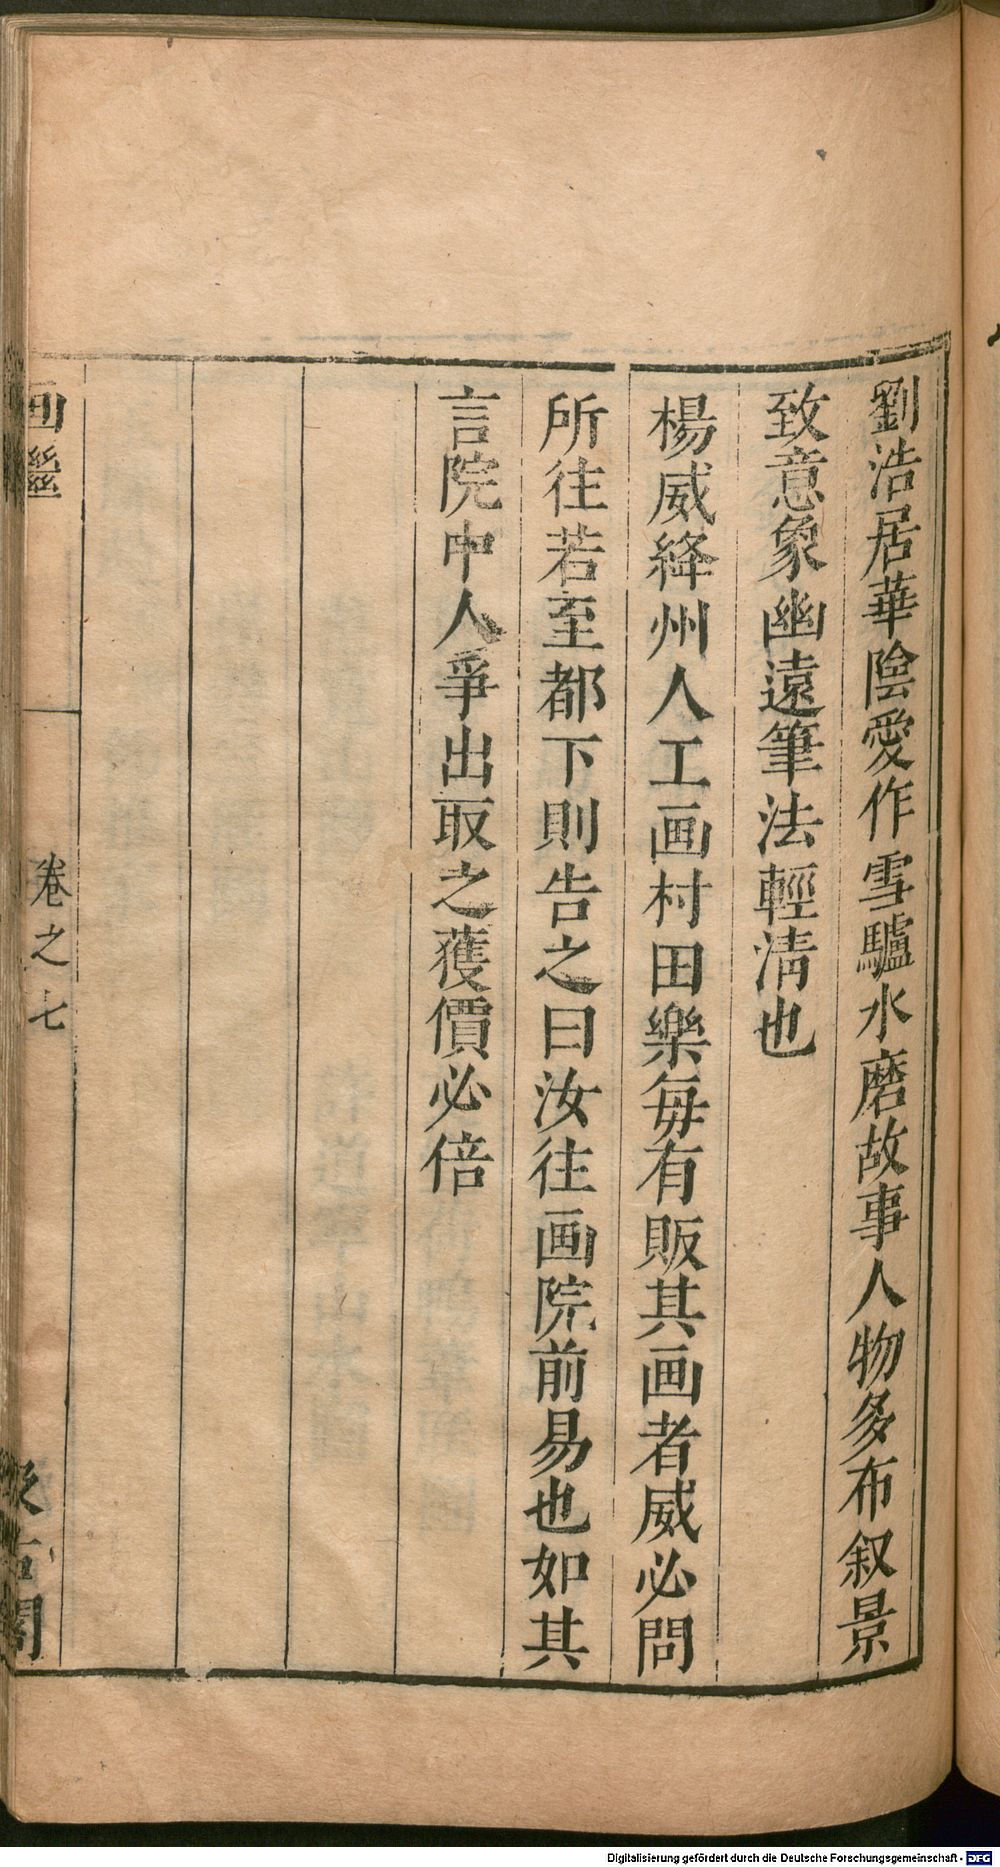 劉浩居華陰愛作雪驢水磨故事人物多布叙景
致意象幽遠筆法輕淸也
楊威絳州人工画村田樂每有販其画者威必問
所往若至都下則告之曰汝往画院前易也如其
言院中人爭出取之獲價必倍
画繼
卷之七
汲古閣
Digitalisierung gefördert durch die Deutsche Forschungsgemeinschaft - DFG